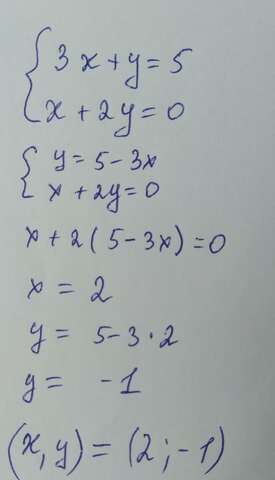 3x+y=5
x+2y=0
y=5-3x
x+2y=0
x+2(5-3x)=0
x=2
y=5-3·2
y=-1
(x,y)=(2;-1)